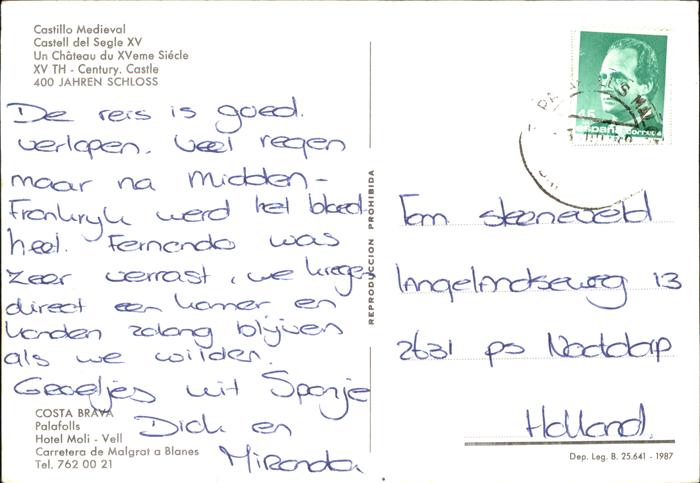 Castillo Medieval
Castell del Segle XV
Un Château du XVeme Siécle
XV TH - Century. Castle
400 JAHREN SCHLOSS
De reis is goed.
verlopen. Veel regen
maar na midden-
Frankryk werd het bloed-
heet. Fernando was
zeer verrast, we kregen
direct een kamer en
konden zolang blijven
als we wilden.
Groetjes uit Spanje
Dick en
Miranda
COSTA BRAVA
Palafolls
Hotel Moli - Vell
Carretera de Malgrat a Blanes
Tel. 762 00 21
REPRODUCCION PROHIBIDA
45
españa correos
Tom steeneveld
langelandseweg 13
2631 ps Nootdorp
Holland.
Dep. Leg. B. 25.641 - 1987